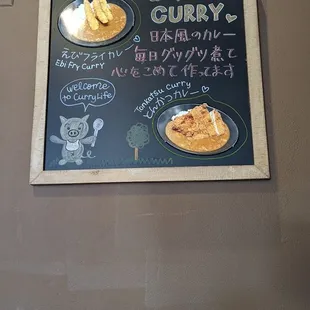 CURRY
日本風のカレー
毎日グツグツ煮て
心をこめて作ってます
えびフライカレー
Ebi Fry Curry
welcome
to CurryLife
Tonkatsu Curry
とんかつカレー